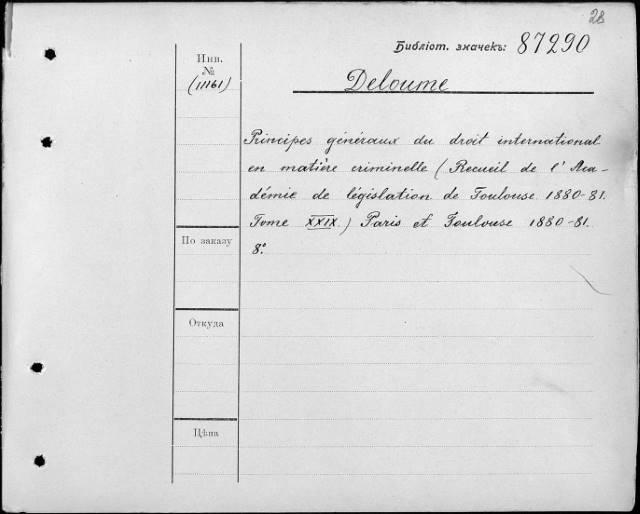 28
Библіот. значекъ: 87290
Инв.
№
(11161)
Deloume
Principes généraux du droit international
en matière criminelle (Recueil de l'Aca-
démie de législation de Toulouse 1880-81.
Tome XXIX.) Paris et Toulouse 1880-81.
8°.
По заказу
Откуда
Цѣна